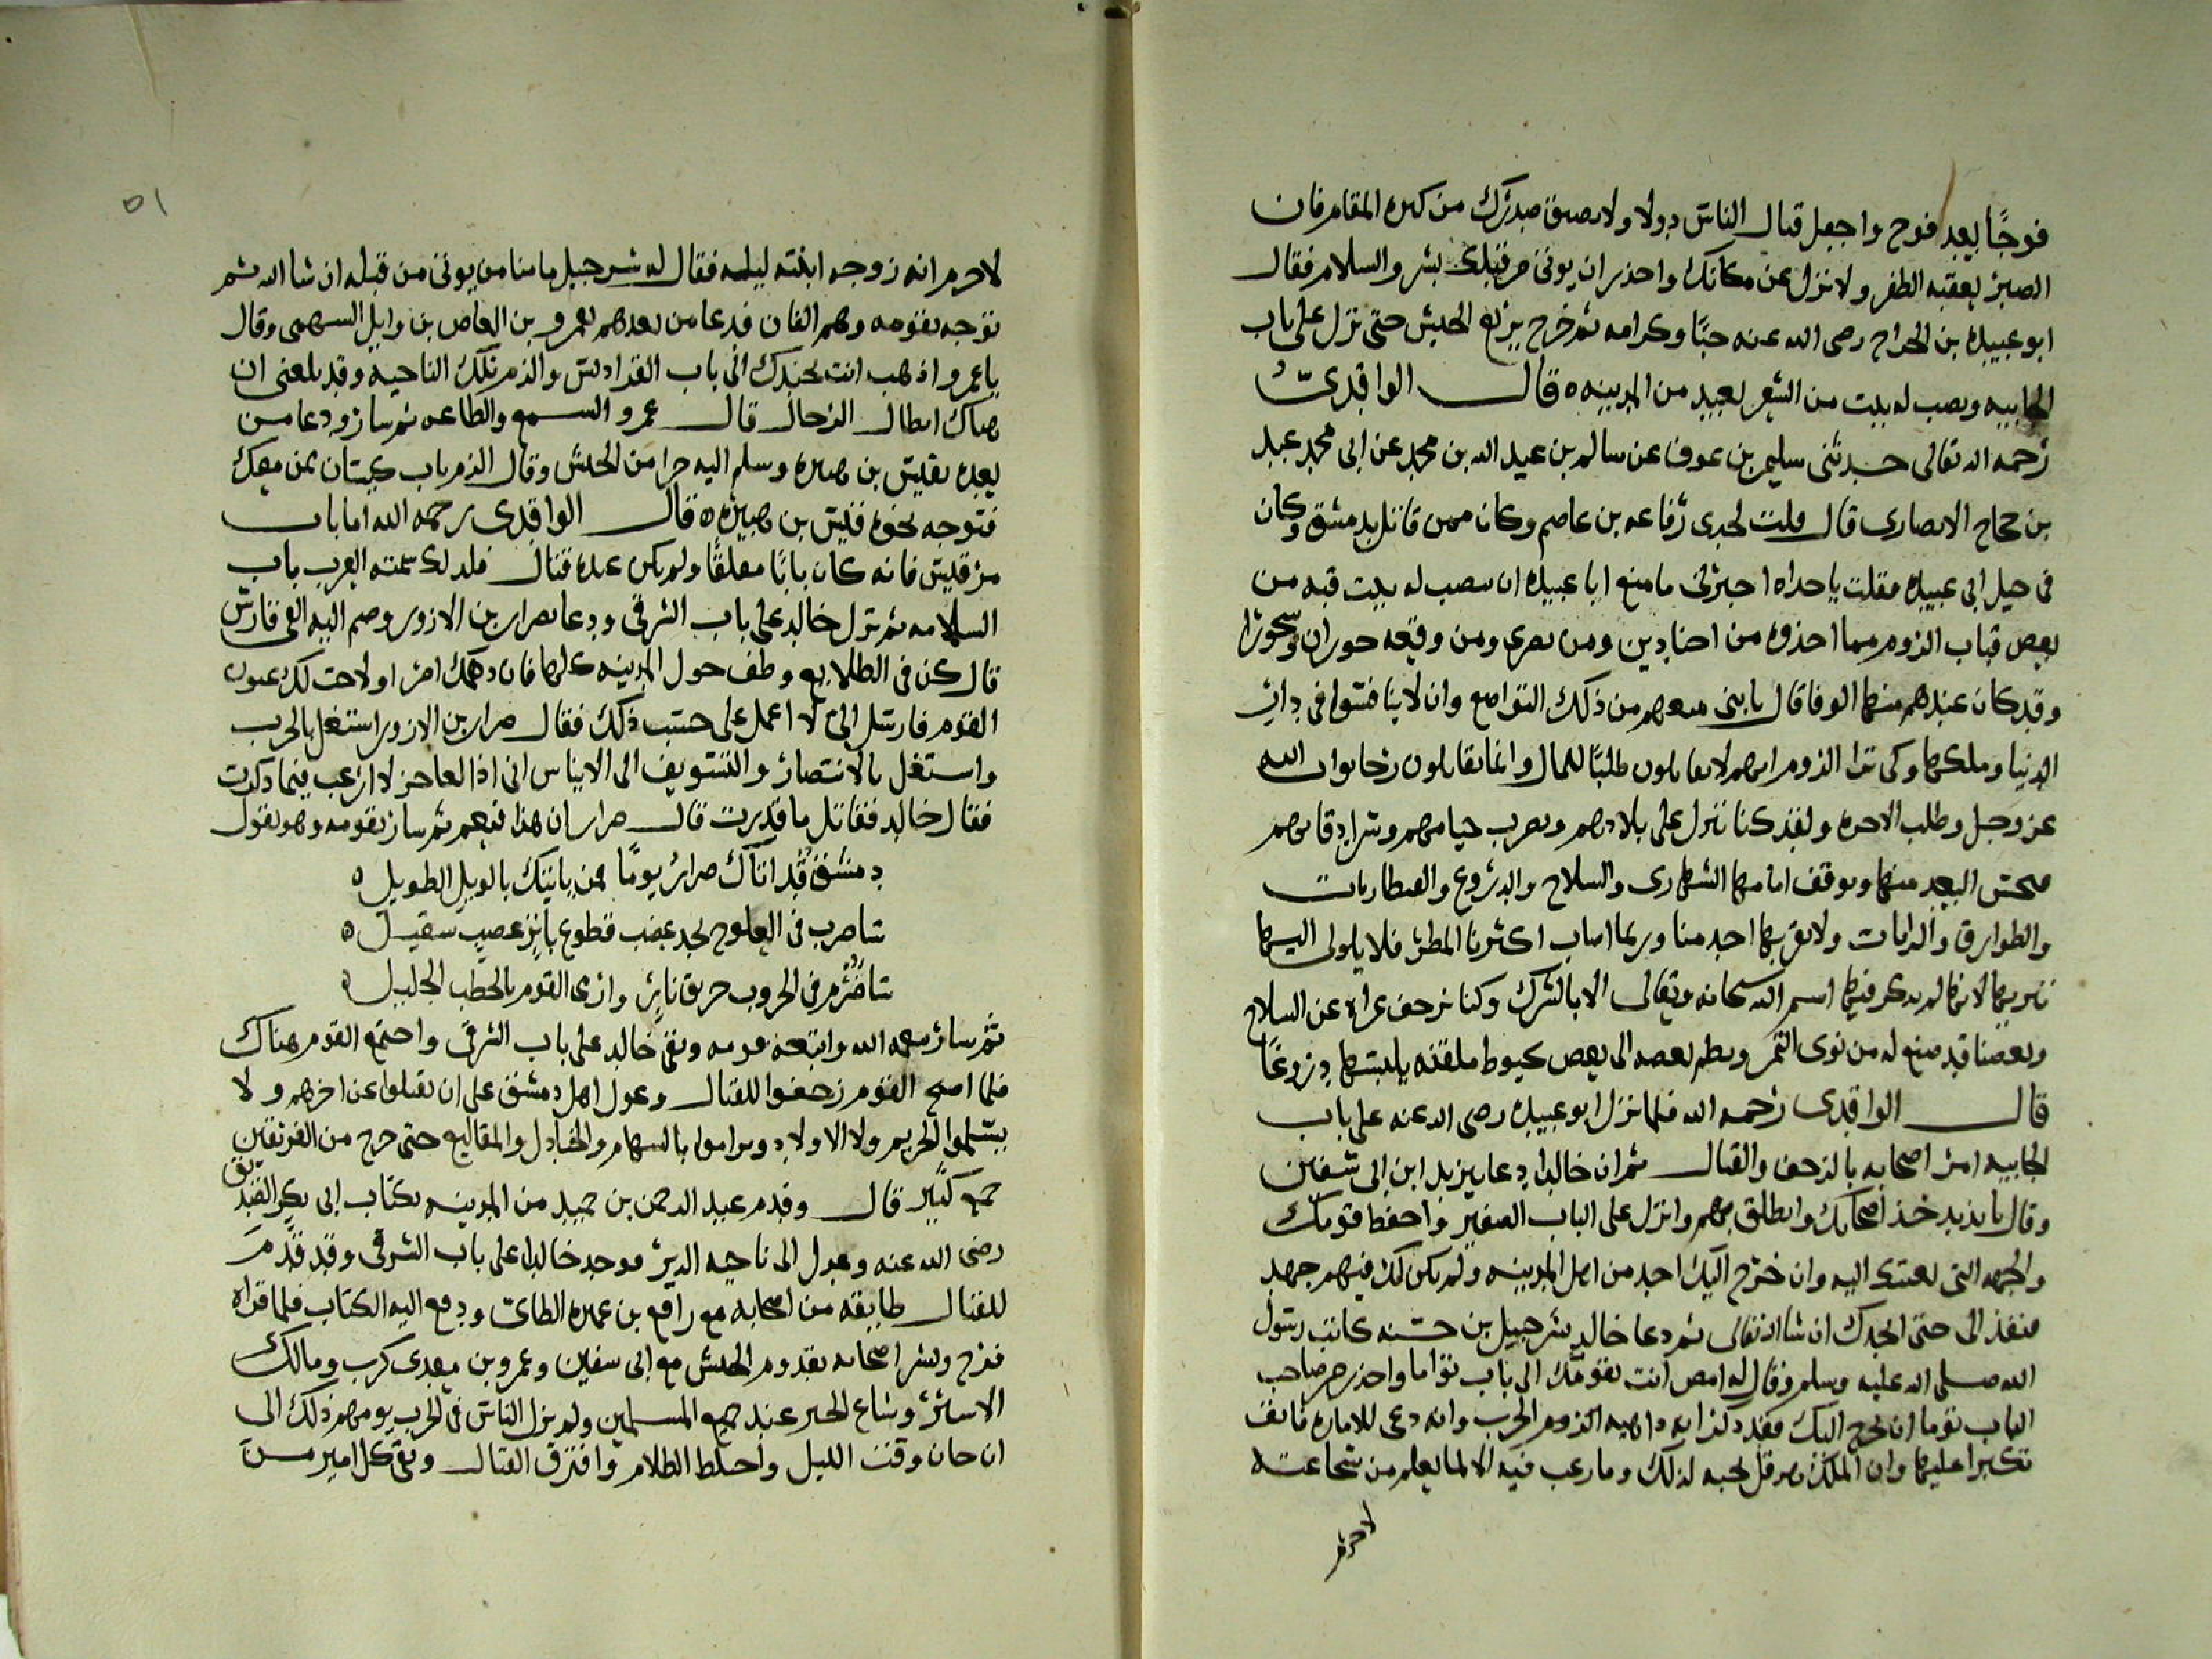 فوجًا بعد فوج واجعل قتال الناس دولا ولا يضيق صدرك من كثرة المقام فان
الصبر يعقبه الظفر ولا تزل عن مكانك واحذر ان يوتى من قبلك بشر والسلام فقال
ابو عبيده بن الجراح رضى الله عنه حبًا وكرامه ثم خرج بربع الجيش حتى نزل على باب
الجابيه ونصب له بيت من الشعر بعيد من المدينه ه قال الواقديّ
رحمه الله تعالى حدثنى سليم بن عوف عن سالم بن عبد الله بن محمد عن ابى محمد عبد
بن حجاج الانصارى قال قلت لجدى رفاعه بن عاصم وكان ممن قاتل بدمشق وكان
فى خيل ابى عبيده فقلت ياجداه اخبرنى مامنع ابا عبيده ان ينصب له بيت قبه من
بعض قباب الروم مما اخذوه من اجنادين ومن بصرى ومن وقعه حوران وسحورا
وقد كان عندهم منها الوفا قال يابنى منعهم من ذلك التواضع وان لا يتنافسوا فى دار
الدنيا وملكها وكى ترا الروم انهم لا يقاتلون طلبًا للمال وانما يقاتلون رجا ثواب الله
عز وجل وطلب الاخره ولقد كنا ننزل على بلادهم ونضرب خيامهم وسرادقاتهم
البعد منها ويوقف امامها الشهارى والسلاح والدروع والقنطاريات
والطوارق والرايات ولا يقربها احد منا وربما اصاب اكثرنا المطر فلا ياوى اليها
لانها لم يذكر فيها اسم الله سبحانه وتعالى الا بالشرك وكنا نزحف عراه عن السلاح
وبعضنا قد صنع له من نوى التمر ونظم بعضه الى بعض كيوط ملفقه يلبسها دروعًا
قال الواقدى رحمه الله فلما نزل ابو عبيده رضى الله عنه على باب
الجابيه امر اصحابه بالزحف والقتال ثم ان خالدا دعا بيزيد ابن ابى سفين
وقال يا يزيد خذ اصحابك وانطلق بهم وانزل على الباب الصغير واحفظ قومك
والجهه التى تعتزى اليه وان خرج اليك احد من اهل المدينه ولم يكن لك فيهم جهد
فنفذ الى حتى انجدك ان شا الله تعالى ثم دعا خالد بشرحبيل بن حسنه كاتب رسول
الله صلى الله عليه وسلم وقال له امض انت بقومك الى باب توما واحذر من صاحب
الباب توما ان يخرج اليك فقد ذكر انه داهيه الروم الحرب وانه دعى للاماره فانف
تكبرا عليها وان الملك هرقل يحبه لذلك وما رغب فيه الا لما يعلم من شجاعته
لاجرم
٥١
لاجرم انه زوجه ابنته ليله فقال له شرحبيل مامنا من يوتى من قبله ان شا الله ثم
توجه بقومه وهم الفان فدعا من بعدهم بعمرو بن العاص بن وايل السهمى وقال
ياعمرو اذهب انت بجندك الى باب الفراديس والزم تلك الناحيه وقد بلغنى ان
هناك ابطال الرجال قال عمرو السمع والطاعه ثم سار ودعا من
بعده بقيس بن هبيره وسلم اليه جزا من الجيش وقال الزم باب كيسان بمن معك
فتوجه نحوه قيس بن هبيره ه قال الواقدى رحمه الله اما باب
مرقليس فانه كان بابًا مغلقًا ولم يكن عنده قتال فلذلك سمته العرب باب
السلامه ثم نزل خالد على باب الشرقى ودعا بضرار بن الازور وضم اليه الفى فارس
قال كن فى الطلايع وطف حول المدينه كلها فان دهمك امر اولاحت لك عيون
القوم فارسل الىّ لا اعمل على حسب ذلك فقال ضرار بن الازور استغل بالحرب
واستغل بالانتصار والتسويف الى الاياس انى اذا لعاجز لا ارغب فيما ذكرت
فقال خالد فقاتل ماقدرت قال ضرار ان هذا فنعم ثم سار بقومه وهو يقول
دمشق قد اتاك ضرار يومًا بمن ياتيك بالويل الطويل ه
ساضرب فى العلوج بحد عضب قطوع باتر عضب سقيل ه
ساضرم فى الحروب حريق نار وارى القوم بالخطب الجليل ه
ثم سار معه الله واتبعه قومه وبقى خالد على باب الشرقى واجتمع القوم هناك
فلما اصبح القوم زحفوا للقتال وعول اهل دمشق على ان يقتلوا عن اخرهم ولا
يسلموا الحريم ولا الاولاد وتراموا بالسهام والجنادل والمقاليع حتى جرح من الفريقين
جمع كبير قال وقدم عبد الرحمن بن حميد من المدينه بكتاب ابى بكر الصديق
رضى الله عنه وعدل الى ناحيه الدير فوجد خالدا على باب الشرقى وقد قدم
للقتال طايفه من اصحابه مع رافع بن عميره الطائ ودفع اليه الكتاب فلما قراه
فرح وبشر اصحابه بقدوم الجيش مع ابى سفين وعمرو بن معدى كرب ومالك
الاستر وشاع الخبر عند جميع المسلمين ولم يزل الناس فى الحرب يومهم ذلك الى
ان حان وقت الليل واختلط الظلام وافترق القتال وبقى كل امير من